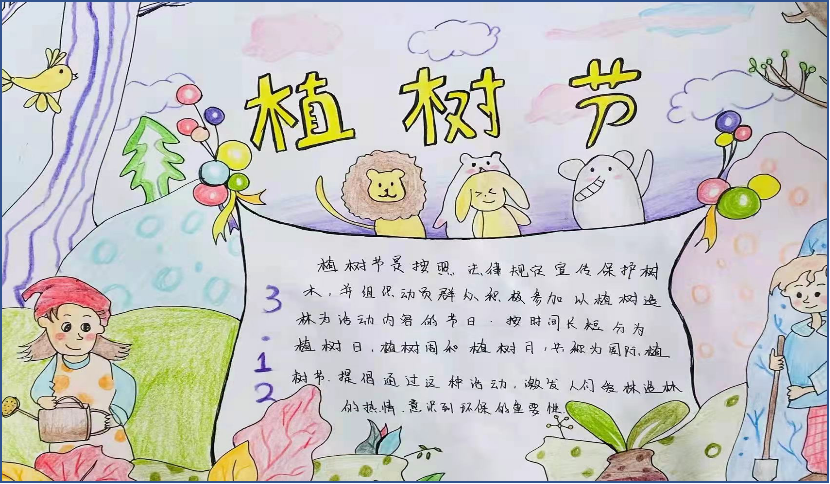 植树节
3.12
植树节是按照法律规定宣传保护树
木，并组织动员群众积极参加以植树造
林为活动内容的节日．按时间长短分为
植树日，植树周和植树月，共称为国际植
树节．提倡通过这种活动，激发人们爱林造林
的热情．意识到环保的重要性